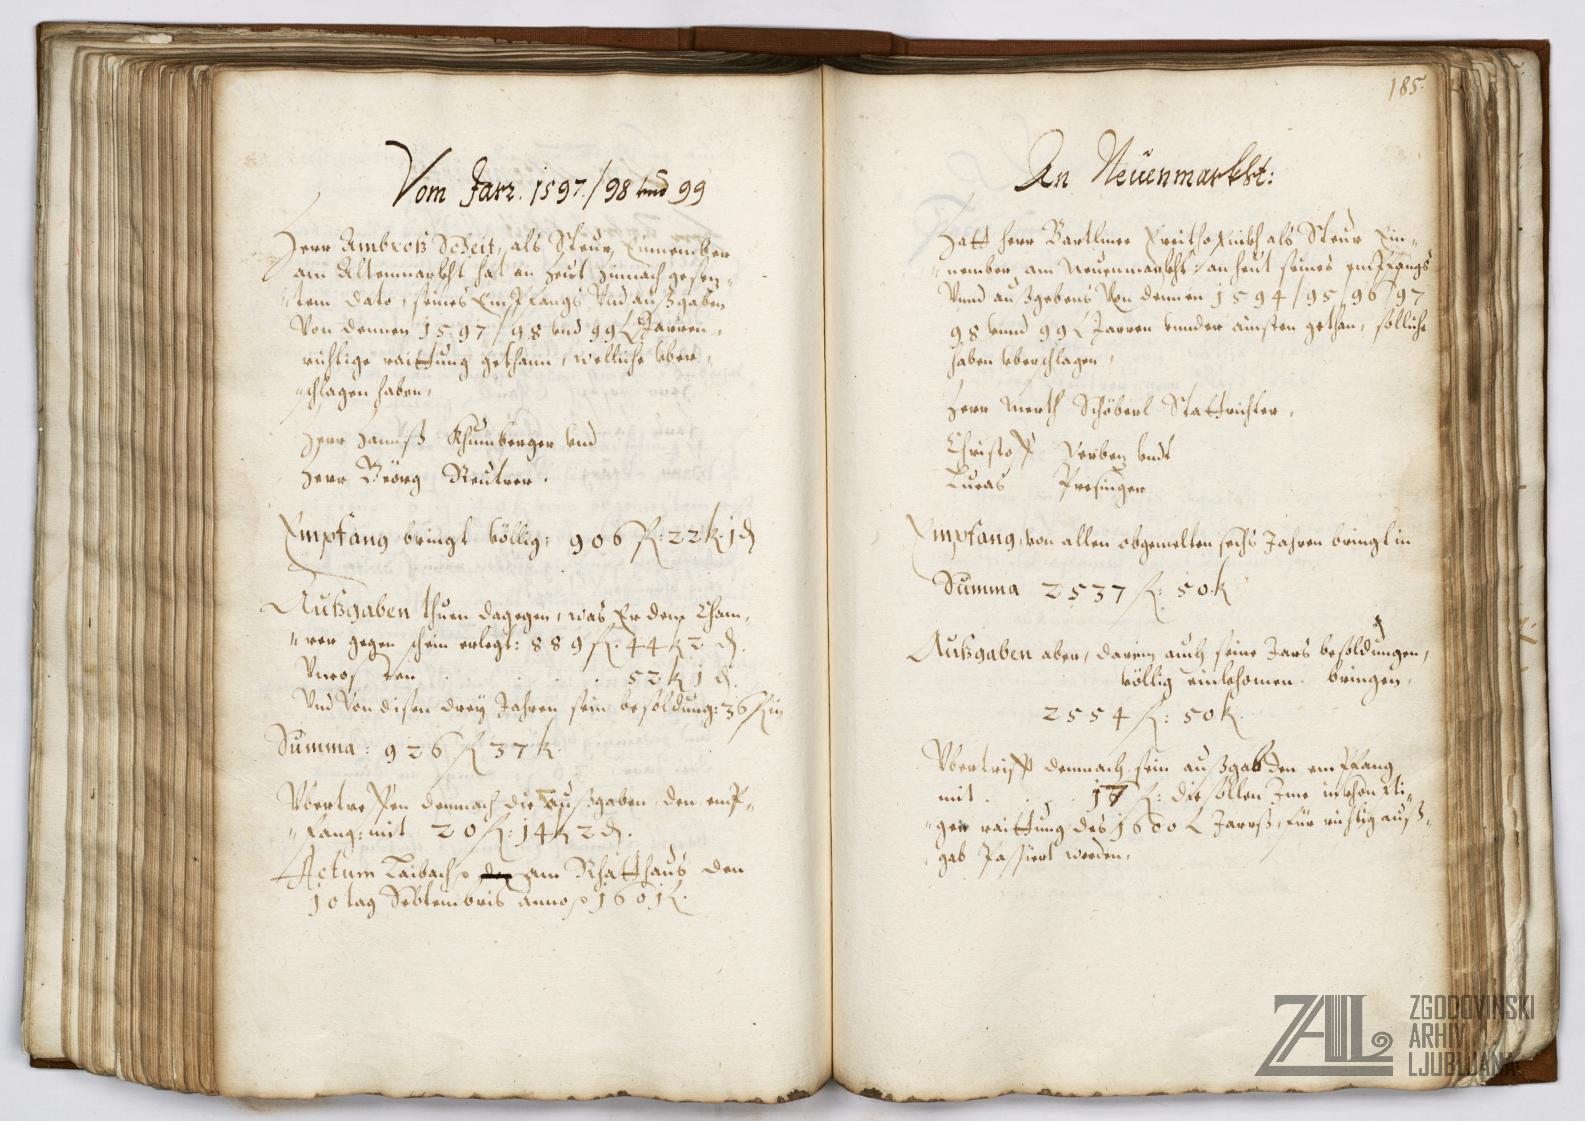 Vom Jarr. 1597./98 vnd 99
Herr Ambroß Scheit, als Steur Einnember
am Altenmarkht hat an heut hinnach gesez-
tem dato, seines Empfangs Vnd außgaben
Von dennen 1597/98 vnd 99 Jarren,
richtige raittung gethann, welliche vber-
schlagen haben,
Herr Hannß Khumberger vnd
Herr Geörg Reutrer.
Empfang bringt völlig: 906 f: 22 k. 1 d
Außgaben thuen dagegen, was Er dem Cham-
rer gegen schein erlegt: 889 f. 44 k 2 d.
. . . 52 k 1 d.
Vnd Von disen drey Jahren sein besoldung: 36 f in
Summa: 926 f 37 k
Vbertreffen demnach die außgaben den empf-
fang: mit 20 f: 14 k 2 d.
Actum Laibach am Rhatthaus den
10 tag Septembris anno 1601
185.
Am Neüenmarkht:
Hatt herr Bartlmee als Steur Ein-
nember am Neuenmarkht: an heut seines empfangs
Vnnd außgebens Von dennen 1594/95 96/97
98 vnnd 99 Jarren gethan, solliche
haben vberschlagen,
Herr Merth Schöberl Stattrichter,
Christoff Verbez vndt
Lucas Presinger
Empfang, von allen obgemelten sechs Jahren bringt in
Summa 2537 f: 50 k
Außgaben aber, darein auch seine Jars besoldungen,
völlig einkhomen. bringen,
2554 f: 50 k.
Vbertrifft demnach sein außgab den empffang
mit . . . 17 f: die sollen Ime in khonffti-
ger raittung des 1600 Jarrß, für richtig auß-
gab Passiert werden.
ZAL
ZGODOVINSKI
ARHIV
LJUBLJANA